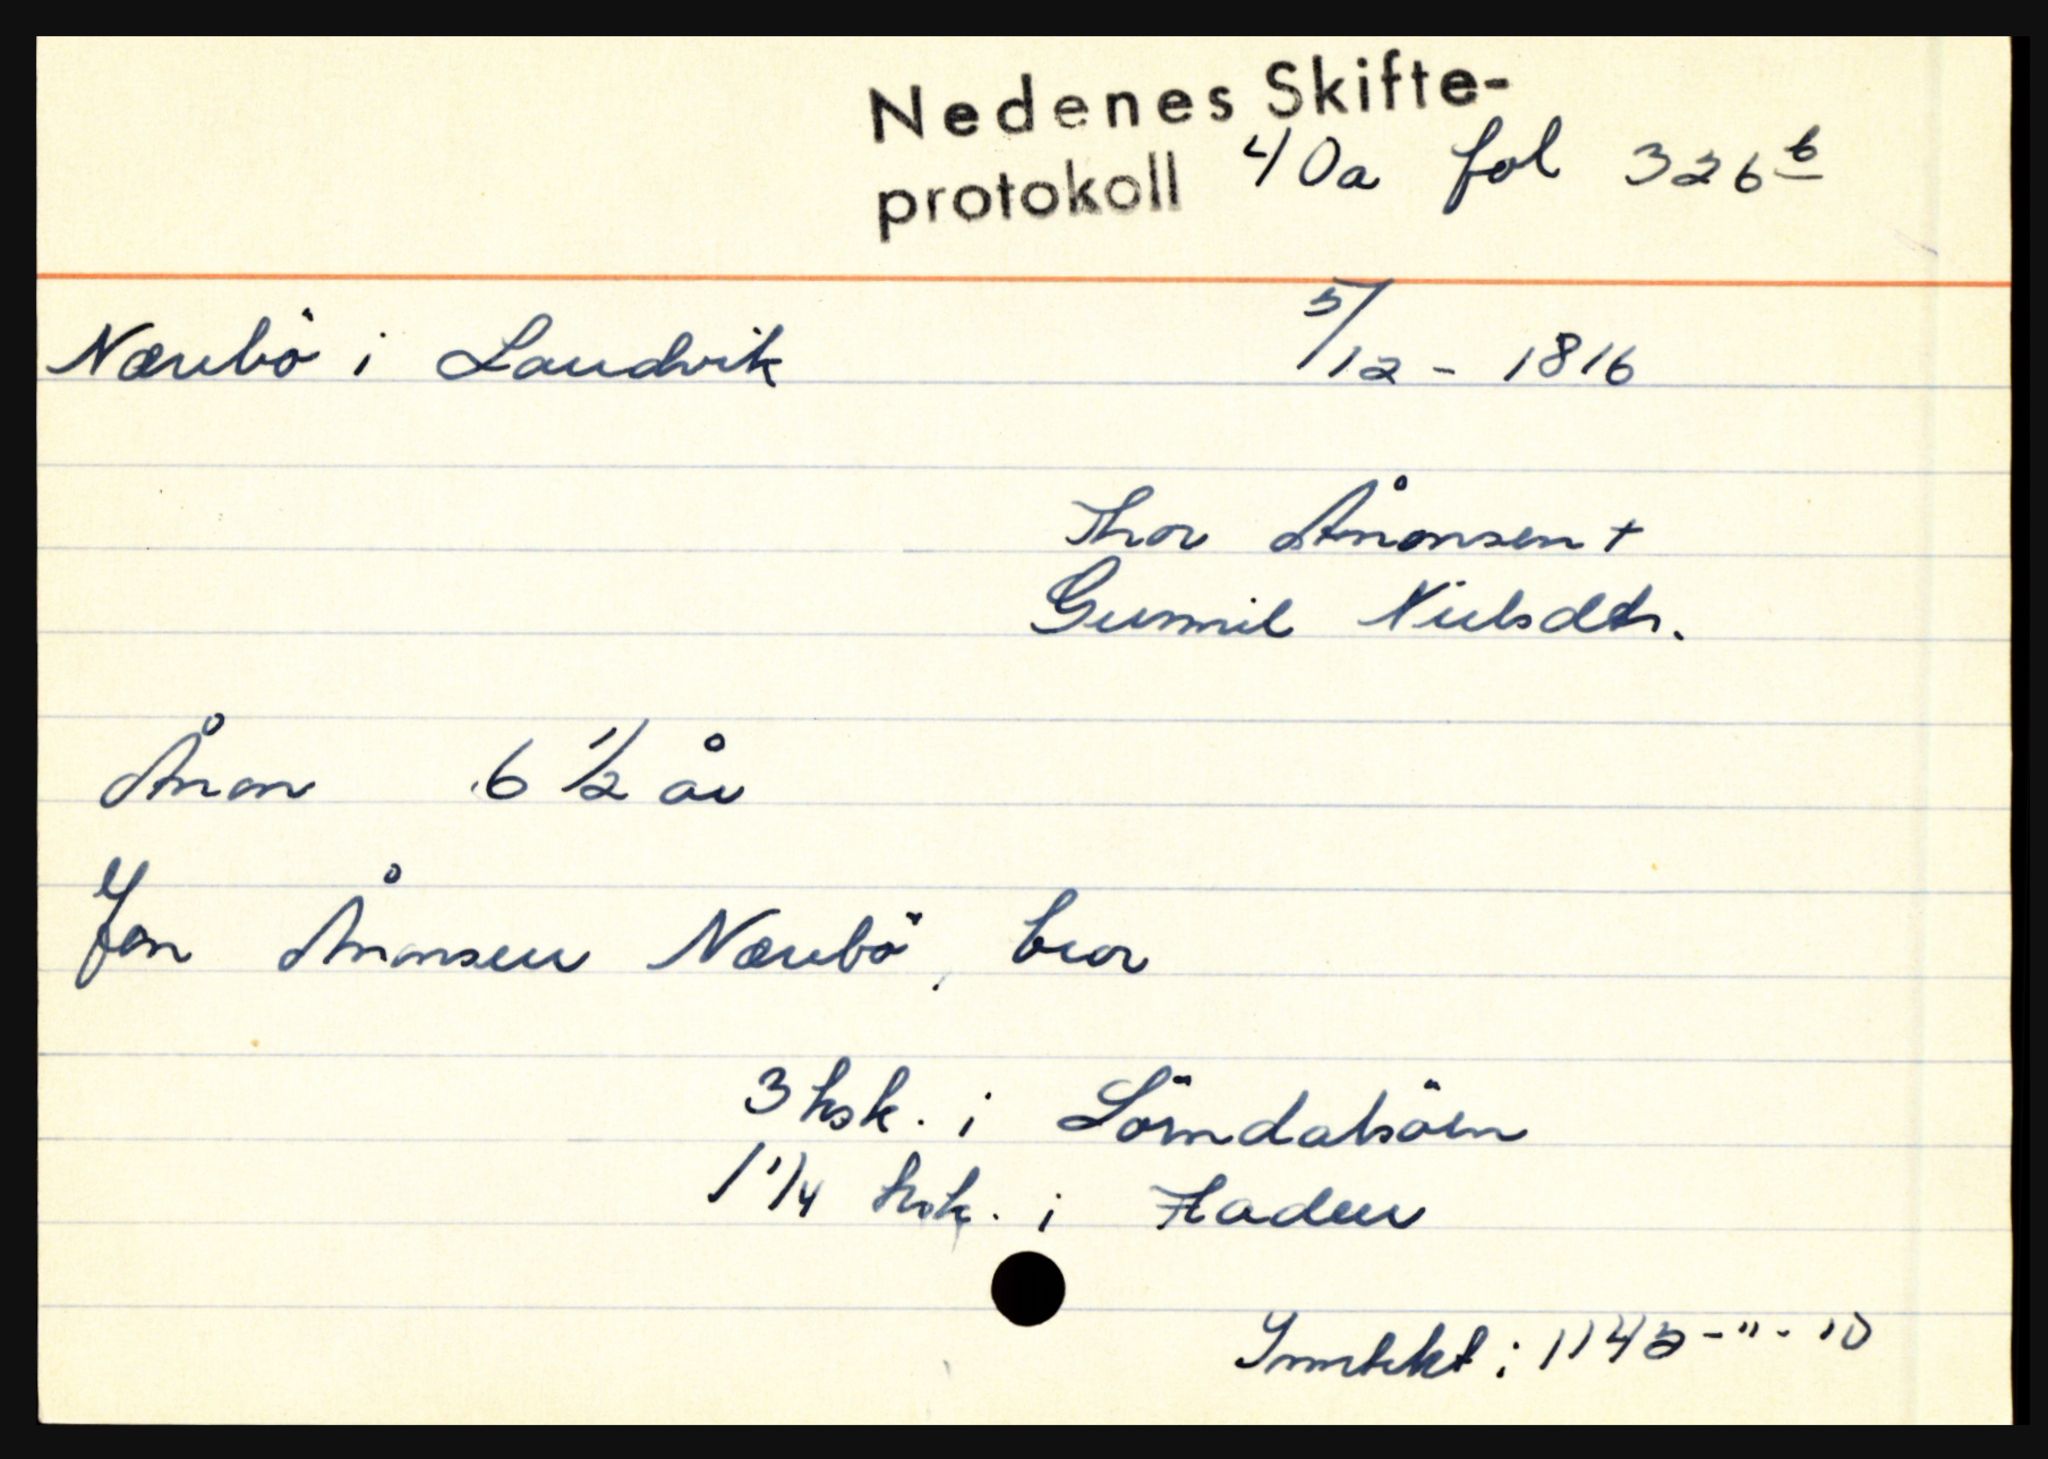 Nedenes Skifte-
protokoll 40a fol 326 b
Nærebö i Landvik 5/12 - 1816
Thor Ånonsen +
Gunnil Nielsdtr.
Ånon 6 1/2 år
Jon Ånonsen Nærebö, bror
3 hsk. i
1 1/4 hsk. i
Inntekt: 1143 - " - 10